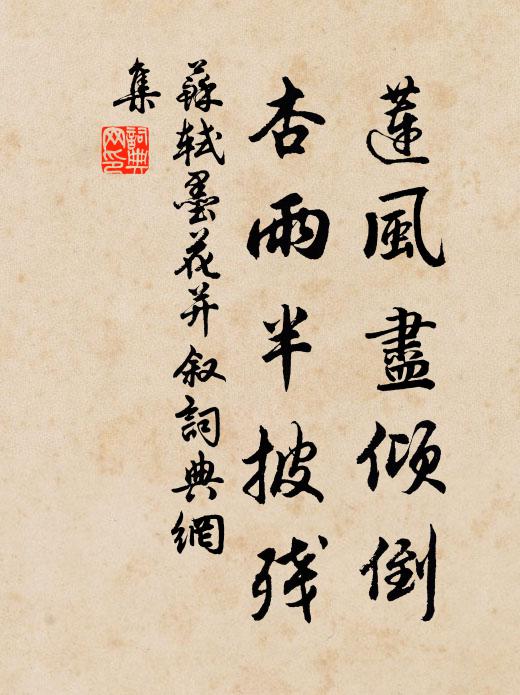 蓮風盡傾倒
杏雨半披殘
蘇軾墨花并叙詞典網
集
詞典
网印